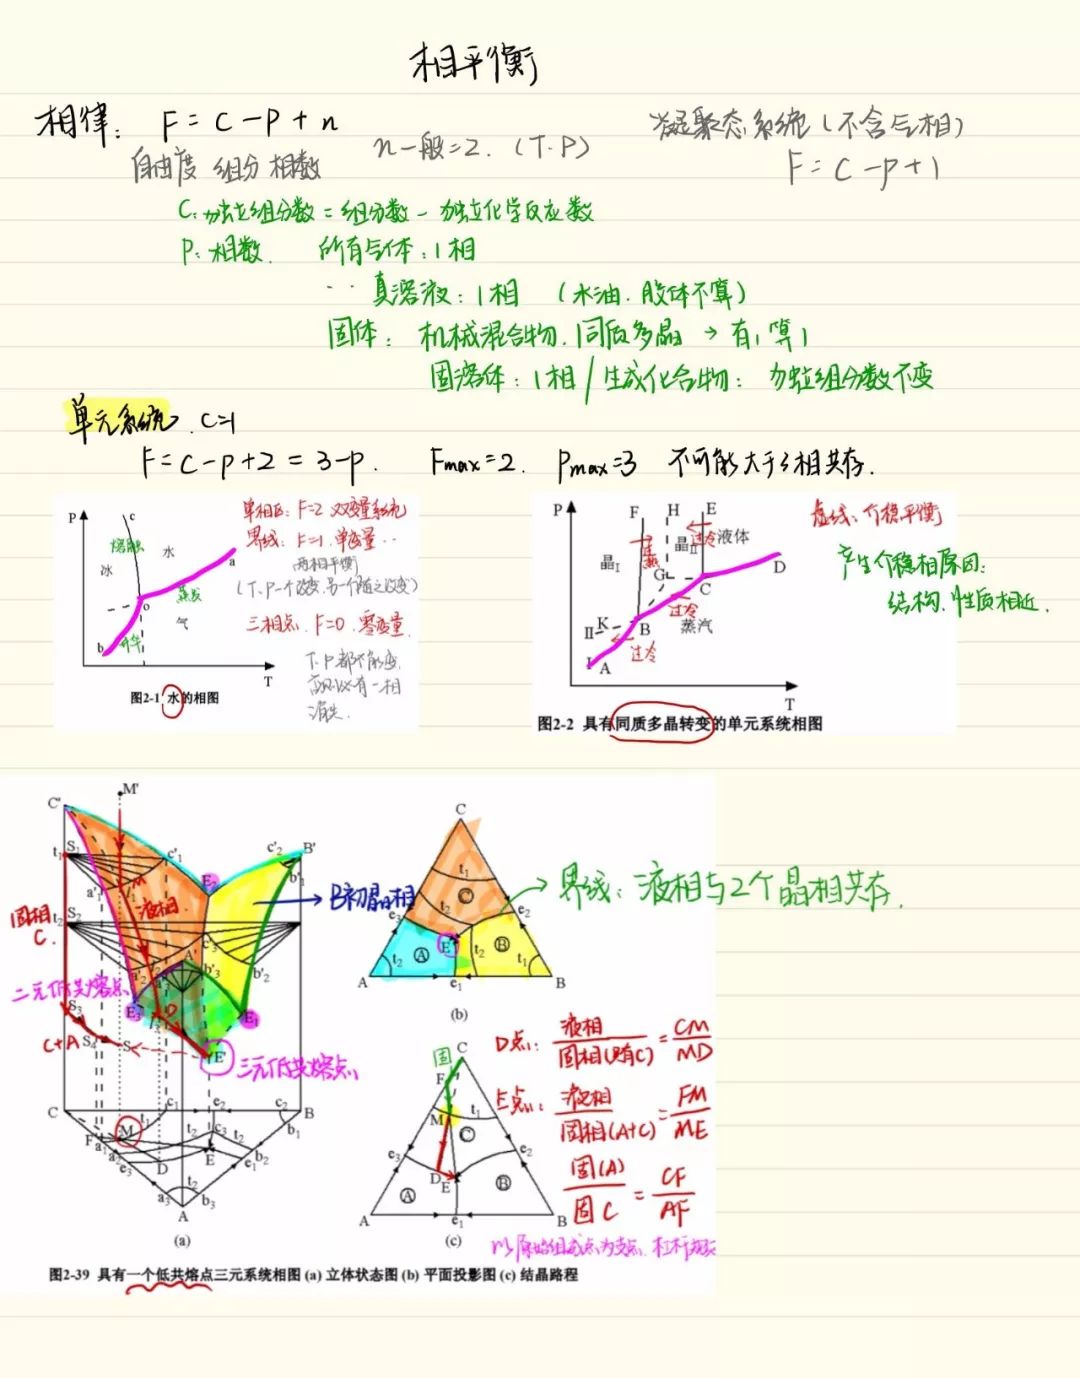 相平衡
相律: F = C - P + n
自由度 组分 相数
n一般=2. (T.P)
凝聚态系统(不含气相)
F = C - P + 1
C:独立组分数 = 组分数 - 独立化学反应数
P:相数. 所有气体:1相
真溶液:1相 (水油.胶体不算)
固体: 机械混合物.同质多晶 → 有1算1
固溶体:1相/生成化合物: 独立组分数不变
单元系统. C=1
F = C-P+2 = 3-P. Fmax=2. Pmax=3 不可能大于3相共存.
P
c
熔融
水
冰
a
o
蒸发
气
b
升华
T
图2-1 水的相图
单相区: F=2 双变量系统
界线: F=1. 单变量
两相平衡
(T、P一个改变.另一个随之改变)
三相点. F=0. 零变量
T.P都不能变.
否则必有一相
消失.
P
F H E
晶I
过热
晶II
过冷
液体
G
C
D
过冷
K
II
B
蒸汽
过冷
I
A
T
图2-2 具有同质多晶转变的单元系统相图
虚线:介稳平衡
产生介稳相原因:
结构.性质相近.
M'
C'
t1 S1
c'1
c'2 B'
b'1
a'1
E2
固相
C.
t2 S2
液相
c'3
A'
a'2 a'3
b'3
b'2
二元低共熔点
S3
E3
D'
E1
C+A
S4
S5
E'
三元低共熔点
C
t1
c1 e2 c2
B
F a1
M
a2
e3
t2 c3 t2
b1
D
E
e1 b2
a3
t2
b3
A
(a)
→ B初晶相
C
t1
C
e3
t2
e2
E'
t2
A
t2
B
t1
A
e1
B
(b)
→ 界线: 液相与2个晶相共存.
固
C
F
M
t1
C
e3
e2
D
E
A
B
A
e1
B
(c)
D点: 液相/固相(只有C) = CM/MD
E点: 液相/固相(A+C) = FM/ME
固(A)/固C = CF/AF
以原始组成点为支点.杠杆规则
图2-39 具有一个低共熔点三元系统相图 (a) 立体状态图 (b) 平面投影图 (c) 结晶路程